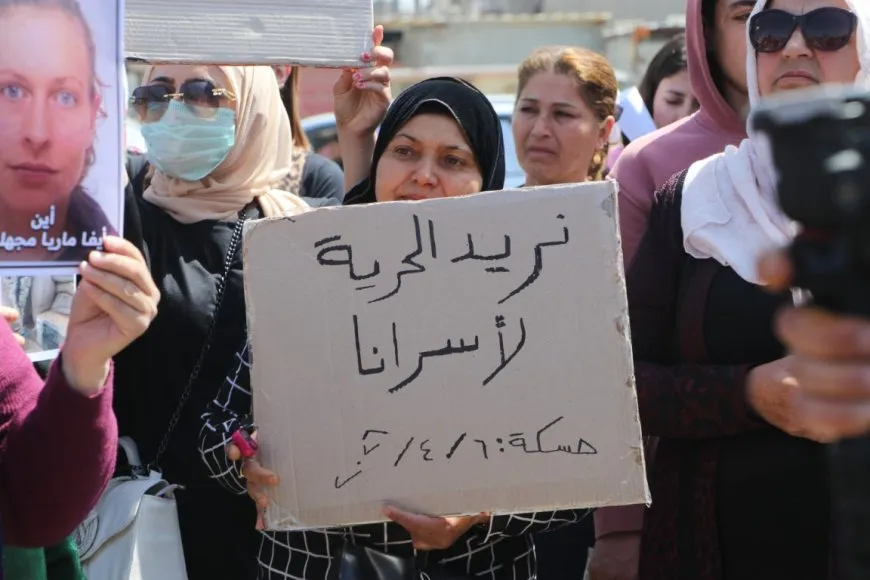 نريد الحرية
لأسرانا
حسكة: ٦/٤/
أين
أيفا ماريا مجهل